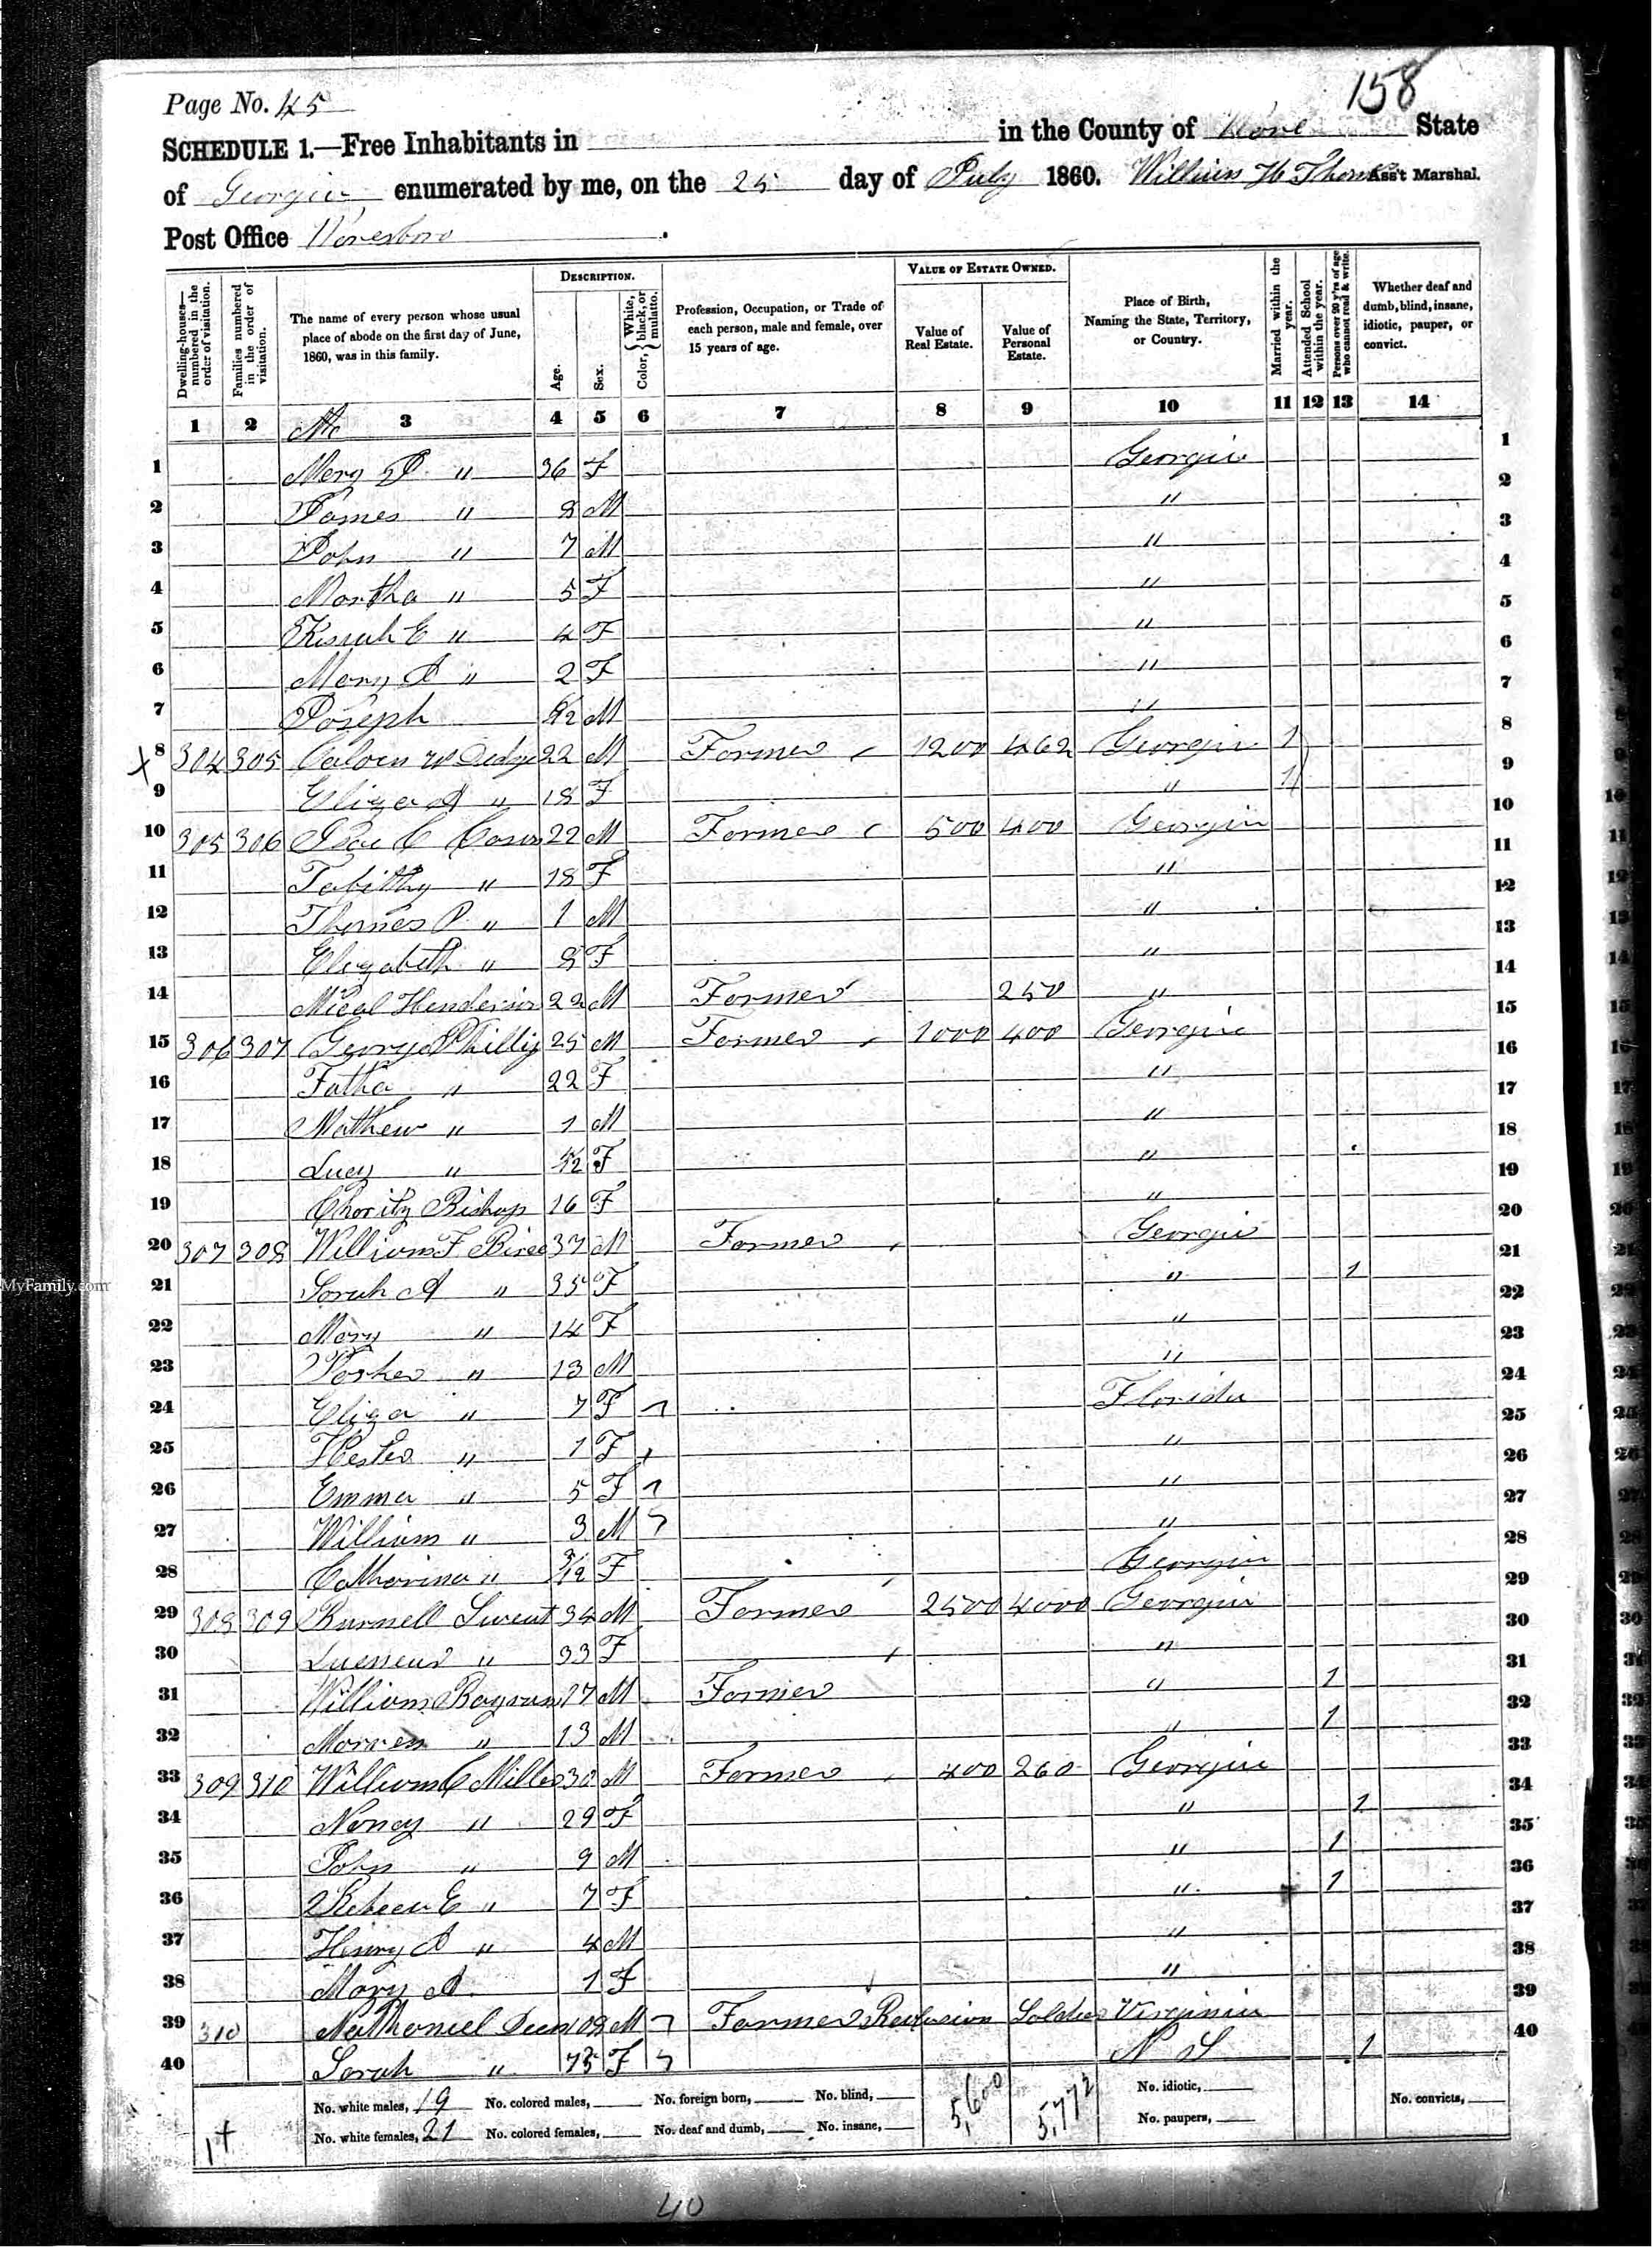 158
Page No. 45
SCHEDULE 1.—Free Inhabitants in in the County of State
of Georgia enumerated by me, on the 25 day of July 1860. William H Ass't Marshal.
Post Office
DESCRIPTION. VALUE OF ESTATE OWNED.
Dwelling-houses—numbered in the order of visitation.
Families numbered in the order of visitation.
The name of every person whose usual place of abode on the first day of June, 1860, was in this family.
Age.
Sex.
Color, { White, black, or mulatto.
Profession, Occupation, or Trade of each person, male and female, over 15 years of age.
Value of Real Estate.
Value of Personal Estate.
Place of Birth, Naming the State, Territory, or Country.
Married within the year.
Attended School within the year.
Persons over 20 y'rs of age who cannot read & write.
Whether deaf and dumb, blind, insane, idiotic, pauper, or convict.
1 2 3 4 5 6 7 8 9 10 11 12 13 14
1 " 36 F Georgia 1
2 James " 8 M " 2
3 John " 7 M " 3
4 Martha " 5 F " 4
5 E " 4 F " 5
6 Mary " 2 F " 6
7 Joseph M " 7
X 8 304 305 Calvin W 22 M Farmer 1200 462 Georgia 1 8
9 Eliza A " 18 F " 1 9
10 305 306 C 22 M Farmer 500 400 Georgia 10
11 Tabitha " 18 F " 11
12 Thomas P. " 1 M " 12
13 Elizabeth " 8 F " 13
14 Henderson 22 M Farmer 250 " 14
15 306 307 George Phillip 25 M Farmer 1000 400 Georgia 15
16 " 22 F " 16
17 Mathew " 1 M " 17
18 Lucy " F " 18
19 Charity Bishop 16 F " 19
20 307 308 William F 37 M Farmer Georgia 20
21 Sarah A " 35 F " 1 21
22 Mary " 14 F " 22
23 " 13 M " 23
24 Eliza " 7 F Florida 24
25 Hester " 1 F " 25
26 Emma " 5 F " 26
27 William " 3 M " 27
28 Catharine " 3/12 F Georgia 28
29 308 309 Sweat 34 M Farmer 2500 4000 Georgia 29
30 " 33 F " 30
31 William 17 M Farmer " 1 31
32 " 13 M " 1 32
33 309 310 William C Miller 30 M Farmer 400 260 Georgia 33
34 Nancy " 29 F " 1 34
35 John " 9 M " 1 35
36 E " 7 F " 1 36
37 Henry " 4 M " 37
38 Mary A. 1 F " 38
39 310 Nathaniel Deen 108 M Farmer Soldier Virginia 39
40 Sarah " 75 F 1 40
No. white males, 19 No. colored males, No. foreign born, No. blind, 5,600 5,772 No. idiotic, No. convicts,
No. white females, 21 No. colored females, No. deaf and dumb, No. insane, No. paupers,
40
MyFamily.com